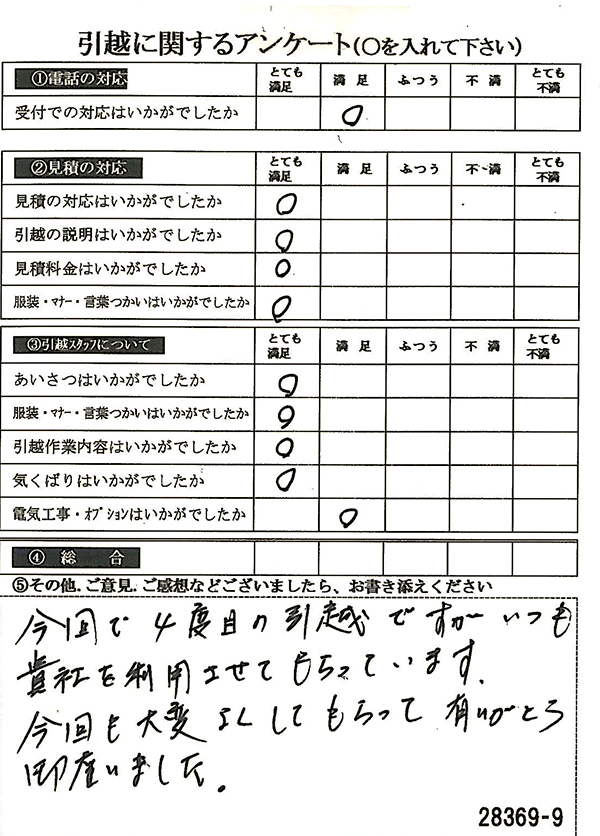 引越に関するアンケート(○を入れて下さい)
①電話の対応 とても満足 満足 ふつう 不満 とても不満
受付での対応はいかがでしたか
②見積の対応 とても満足 満足 ふつう 不満 とても不満
見積の対応はいかがでしたか
引越の説明はいかがでしたか
見積料金はいかがでしたか
服装・マナー・言葉つかいはいかがでしたか
③引越スタッフについて とても満足 満足 ふつう 不満 とても不満
あいさつはいかがでしたか
服装・マナー・言葉つかいはいかがでしたか
引越作業内容はいかがでしたか
気くばりはいかがでしたか
電気工事・オプションはいかがでしたか
④総合
⑤その他.ご意見.ご感想などございましたら、お書き添えください
今回で4度目の引越ですがいつも
貴社を利用させてもらっています.
今回も大変よくしてもらって有りがとう
御座いました。
28369-9